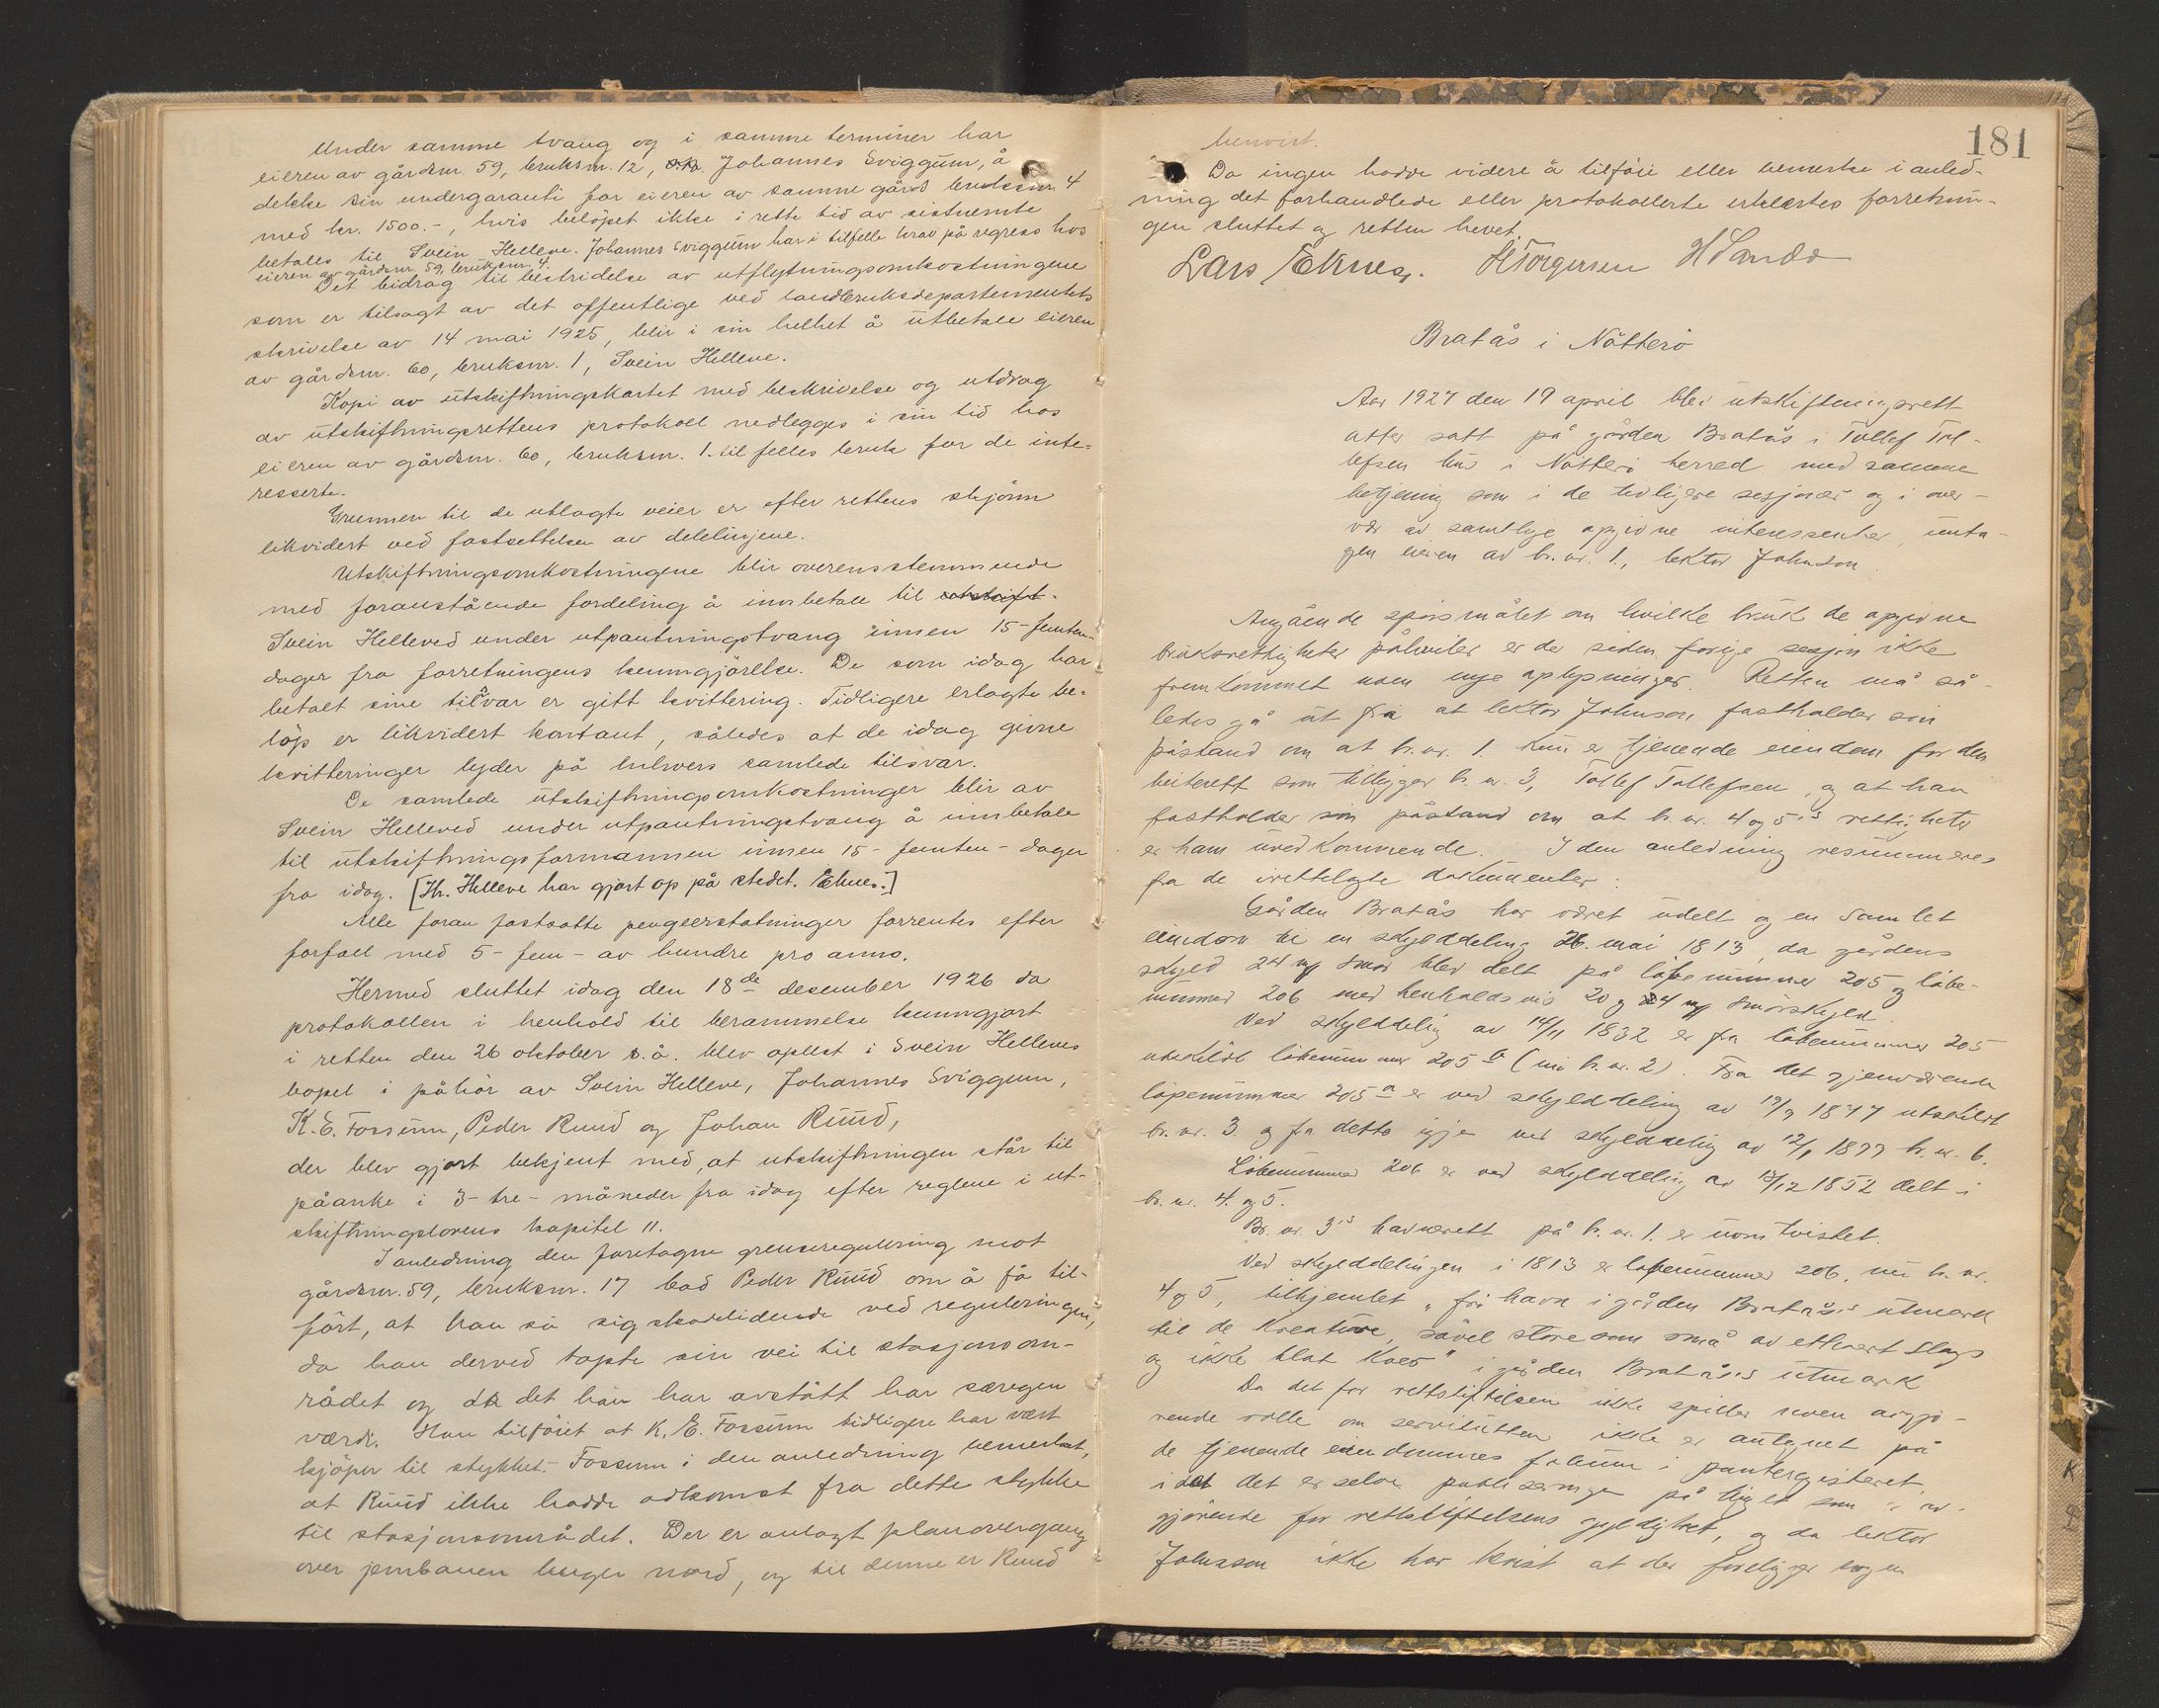 Under samme tvang og i samme terminer har
eieren av gårdsnr. 59, bruksnr. 12, Johannes Sviggum, å
dekke sin undergaranti for eieren av samme gårds bruksnr. 4
med kr. 1500.-, hvis beløpet ikke i rette tid av sistnemte
betales til Svein Helleve. Johannes Sviggum har i tilfelle krav på regress hos
eieren av gårdsnr. 59, bruksnr. 4.
Det bidrag til bestridelse av utflytningsomkostningene
som er tilsagt av det offentlige ved landbruksdepartementets
skrivelse av 14 mai 1925, blir i sin helhet å utbetale eieren
av gårdsnr. 60, bruksnr. 1, Svein Helleve.
Kopi av utskiftningskartet med beskrivelse og utdrag
av utskiftningsrettens protokoll nedlegges i sin tid hos
eieren av gårdsnr. 60, bruksnr. 1. til felles bruk for de inte=
resserte.
Grunnen til de utlagte veier er efter rettens skjønn
likvidert ved fastsettelsen av delelinjene.
Utskiftningsomkostningene blir overensstemmende
med foranstående fordeling å innbetale til utskift-
Svein Helleved under utpantningstvang innen 15-femten-
dager fra forretningens kunngjørelse. De som idag har
betalt sine tilsvar er gitt kvittering. Tidligere erlagte be=
løp er likvidert kontant, således at de idag givne
kvitteringer lyder på enhvers samlede tilsvar.
De samlede utskiftningsomkostninger blir av
Svein Helleved under utpantningstvang å innbetale
til utskiftningsformannen innen 15-femten-dager
fra idag. [Hr. Helleve har gjort op på stedet. Eknes.]
Alle foran fastsatte pengeerstatninger forrentes efter
forfall med 5-fem- av hundre pro anno.
Hermed sluttet idag den 18de desember 1926 da
protokollen i henhold til berammelse kunngjort
i retten den 26 oktober s.å. blev oplest i Svein Helleves
bopel i påhør av Svein Helleve, Johannes Sviggum,
K.E. Fossum, Peder Ruud og Johan Ruud,
der blev gjort bekjent med, at utskiftningen står til
påanke i 3-tre-måneder fra idag efter reglene i ut-
skiftningslovens kapitel 11.
I anledning den foretagne grenseregulering mot
gårdsnr. 59, bruksnr. 17 bad Peder Ruud om å få til-
ført, at han så sig skadelidende ved reguleringen,
da han derved tapte sin vei til stasjonsom-
rådet og da det han har avstått har særegen
værdi. Han tilføiet at K. E. Fossum tidligere har vært
kjøper til stykket. Fossum i den anledning bemerket,
at Ruud ikke hadde adkomst fra dette stykke
til stasjonsområdet. Der er anlagt planovergang
over jernbanen lenger nord, og til denne er Ruud
181
henvist.
Da ingen hadde videre å tilføie eller bemerke i anled-
ning det forhandlede eller protokollerte erklærtes forretnin-
gen sluttet og retten hevet.
Lars Eknes. H Torgersen H Sando
Bratås i Nøtterø
Aar 1927 den 19 april blev utskiftningsrett
atter satt på gården Bratås i Tollef Tol-
lefsen hus i Nøtterø herred med samme
betjening som i de tidligere sesjoner og i over-
vær av samtlige opgivne interessenter, unta-
gen eieren av br.nr. 1., lektor Johnson.
Angående spørsmålet om hvilke bruk de opgivne
bruksrettigheter påhviler er der siden forrige sesjon ikke
fremkommet noen nye oplysninger. Retten må så-
ledes gå ut fra at lektor Johnson fastholder sin
påstand om at br.nr. 1. kun er tjenende eiendom for den
beiterett som tilligger br.nr. 3, Tollef Tollefsen, og at han
fastholder sin påstand om at br.nr. 4 og 5's rettigheter
er ham uvedkommende. I den anledning resumeres
fra de irettelagte dokumenter:
Gården Bratås har været udelt og en samlet
eiendom til en skylddeling 26. mai 1813, da gårdens
skyld 24 mk smør blev delt på løpenummer 205 og løbe-
nummer 206 med henholdsvis 20 og 4 mk smørskyld.
Ved skylddeling av 14/11 1832 er fra løbenummer 205
utskilt løbenummer 205 b (nu br.nr. 2). Fra det gjenværende
løpenummer 205 a er ved skylddeling av 19/9 1877 utskilt
br.nr. 3. og fra dette igjen ved skylddeling av 12/1 1899 br.nr. 6.
Løbenummer 206 er ved skylddeling av 13/12 1852 delt i
br.nr. 4. og 5.
Br.nr. 3's havnerett på br.nr. 1. er uomtvistet.
Ved skylddelingen i 1813 er løpenummer 206, nu br.nr.
4 og 5, tilkjendet „fri havn i gården Bratås's utmark
til de kreature, såvel store som små av ethvert slags
og ikke blot kors" i gården Bratås's utmark
Da det for rettstiftelsen ikke spiller noen avgjø-
rende rolle om servitutten ikke er antegnet på
de tjenende eiendommes folium i panteregisteret,
idet det er selve publiseringen på tinget som er av-
gjørende for rettsstiftelsens gyldighet, og da lektor
Johnson ikke har bevist at der foreligger nogen